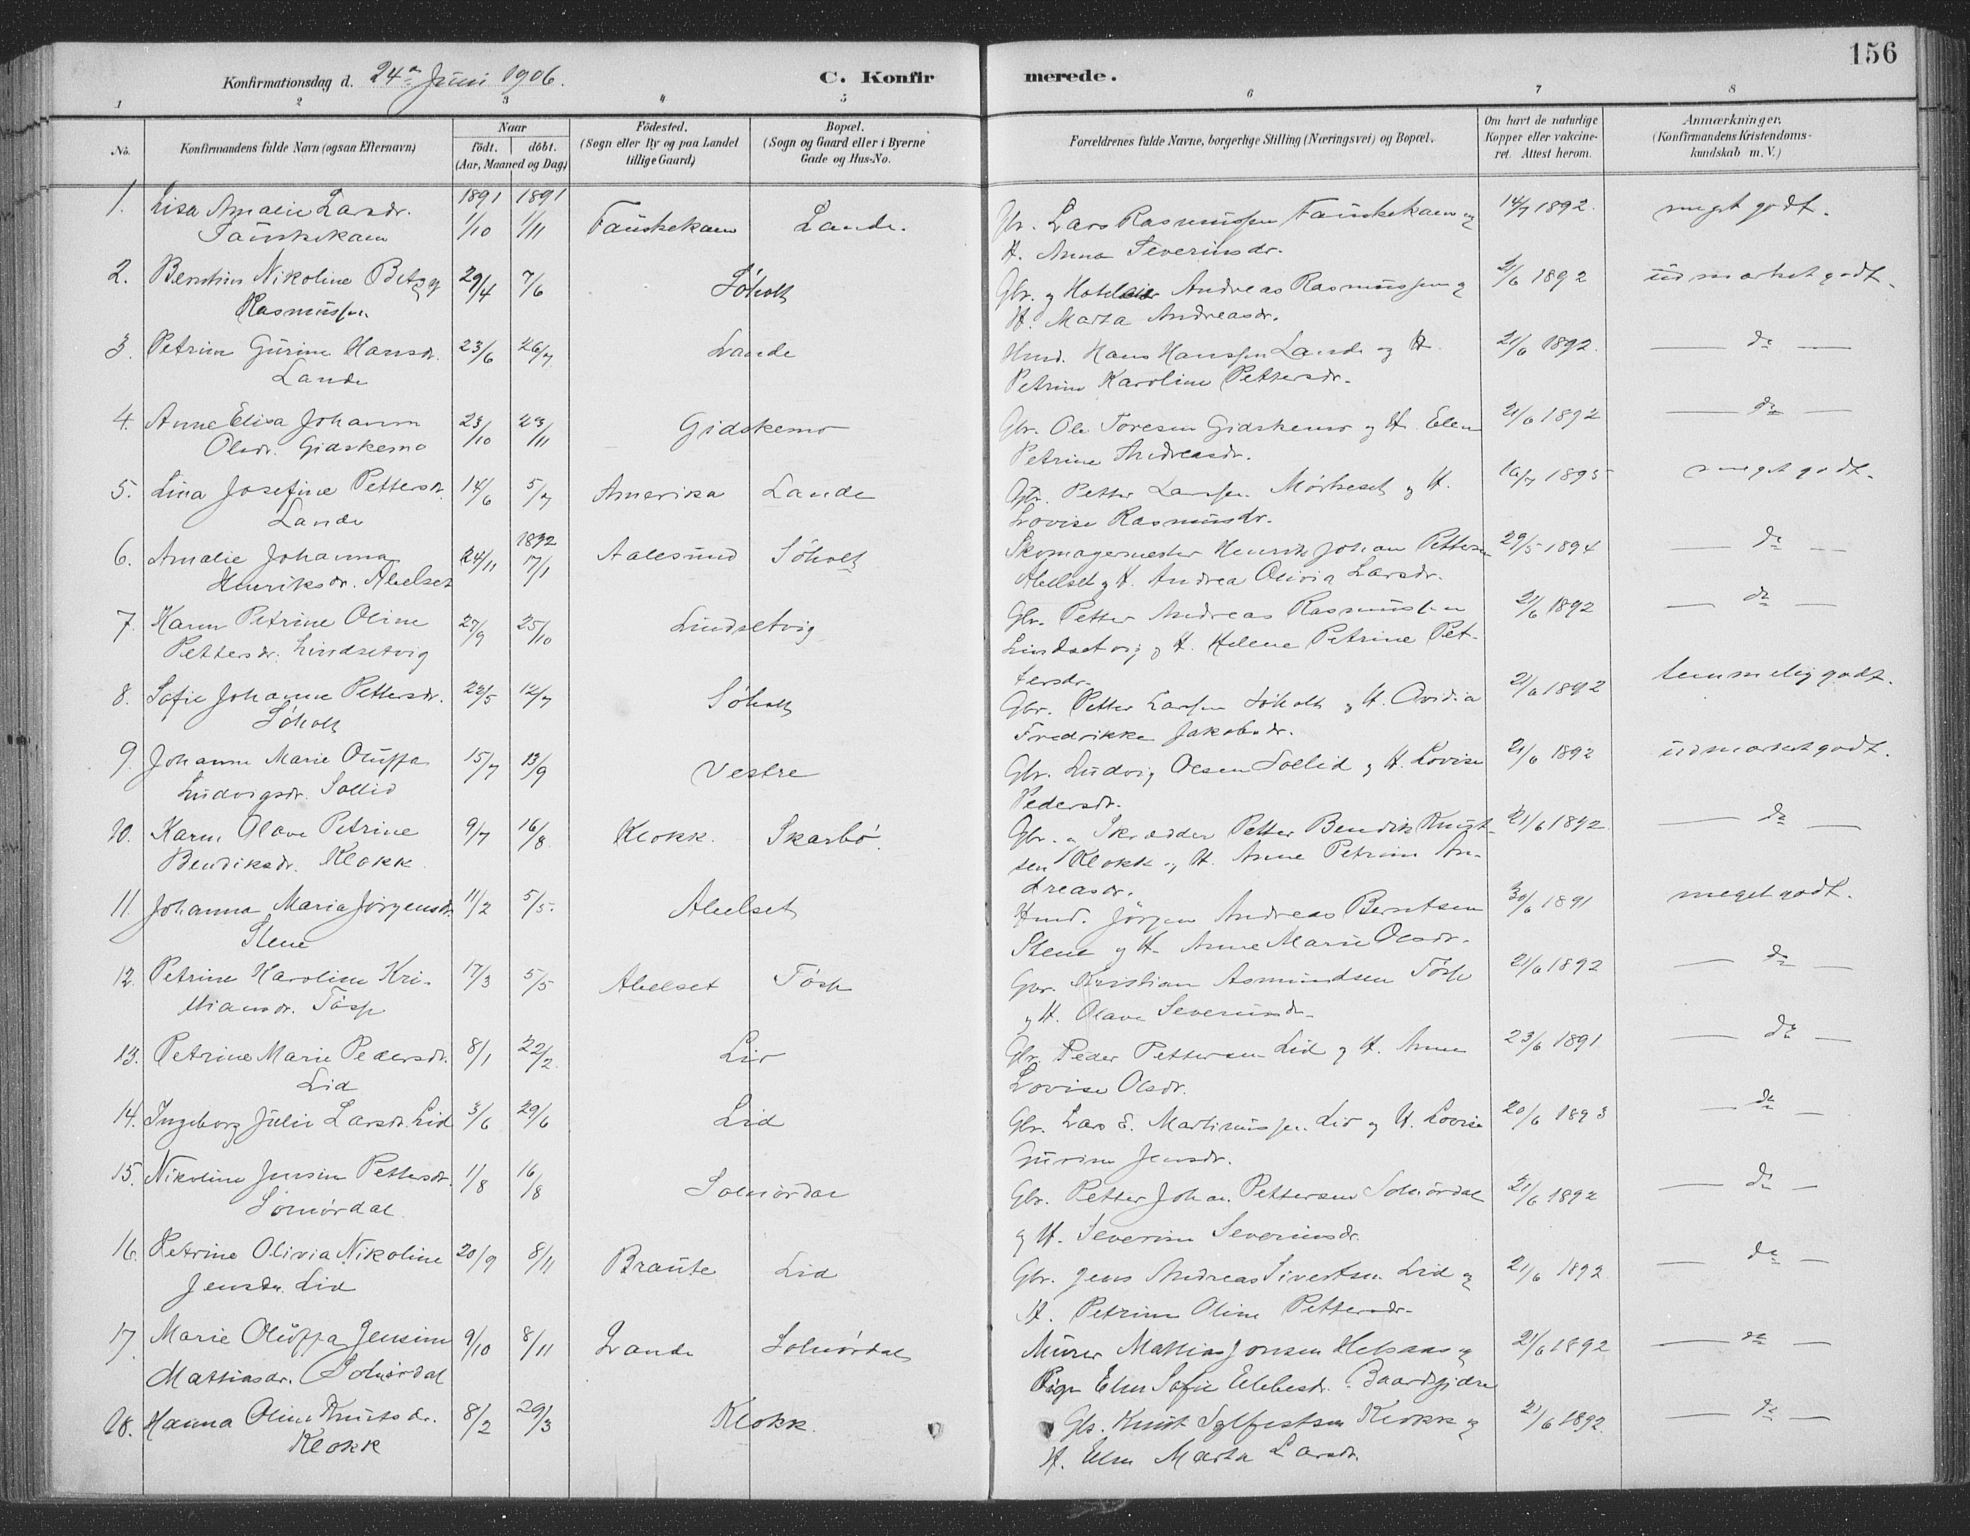 156
Konfirmationsdag d. 24de Juni 1906.
C. Konfirmerede.
1 2 3 4 5 6 7 8
No.
Konfirmandens fulde Navn (ogsaa Efternavn)
Naar
födt. döbt.
(Aar, Maaned og Dag)
Födested.
(Sogn eller By og paa Landet tillige Gaard)
Bopæl.
(Sogn og Gaard eller i Byerne Gade og Hus-No.
Forældrenes fulde Navne, borgerlige Stilling (Næringsvei) og Bopæl.
Om havt de naturlige Kopper eller vakcineret. Attest herom.
Anmærkninger.
(Konfirmandens Kristendomskundskab m. V.)
1. Lisa Amalie Larsdr. 1891 1/10 1891 1/11 Fauskekaem Lande. Gbr. Lars Rasmussen Fauskekaem og 14/7 1892. meget godt.
Fauskekaem H. Anna Severinsdr.
2. Berntine Nikoline Betzy 29/4 7/6 Söholt Gbr. og Andreas Rasmussen og 21/6 1892 udmærket godt.
Rasmussen H. Marta Andreasdr.
3. Petrine Gurine Hansdr. 23/6 26/7 Lande Hmd. Hans Hanssen Lande og H. 21/6 1892. — do —
Lande Petrine Karoline Pettersdr.
4. Anne Elisa Johanna 23/10 29/11 Gidskemo Gbr. Ole Toresen Gidskemo og H. Elen 21/6 1892 — do —
Olsdr. Gidskemo Petrine Andreasdr.
5. Lina Josefine Pettersdr. 14/6 5/7 Amerika Lande Gbr. Petter Larssen Mörkeset og H. 16/7 1895 meget godt.
Lande Lovise Rasmusdr.
6. Amalie Johanna 24/11 1892 17/1 Aalesund Söholt Skomagermester Henrik Johan Pettersen 29/5 1894 — do —
Henriksdr. Abelset Abelset og H. Andrea Olivia Larsdr.
7. Karen Petrine Oline 27/9 25/10 Lindsetvig Gbr. Petter Andreas Rasmussen 21/6 1892 — do —
Pettersdr. Lindsetvig Lindsetvig og H. Helene Petrine Pet-
tersdr.
8. Sofie Johanne Pettersdr. 22/5 12/7 Söholt Gbr. Petter Larssen Söholt og H. Ovidia 21/6 1892 temmelig godt.
Söholt Fredrikke Jakobsdr.
9. Johanne Marie Oluffa 15/7 13/9 Vestre Gbr. Ludvig Olsen Sollid og H. Lovise 21/6 1892 udmærket godt.
Ludvigsdr. Sollid Pedersdr.
10. Karen Olave Petrine 9/7 16/8 Klokk. Skarbö. Gbr. og Skrædder Petter Bendik Knut- 21/6 1892 — do —
Bendiksdr. Klokk. sen Klokk og H. Anne Petrine An-
dreasdr.
11. Johanna Maria Jörgensdr. 11/2 5/5. Abelset Hmd. Jörgen Andreas Berntsen 30/6 1891 meget godt.
Stene Stene og H. Anne Marie Olsdr.
12. Petrine Karoline Kri- 17/3 5/5 Abelset Tösse Gbr. Kristian Asmundsen Tösse 21/6 1892 — do —
stiansdr. Tösse og H. Olave Severinsdr.
13. Petrine Marie Pedersdr. 8/1 22/2 Lid Gbr. Peder Pettersen Lid og H. Anne 23/6 1891 — do —
Lid Lovise Olsdr.
14. Ingeborg Julie Larsdr. Lid 3/6 29/6 Lid Gbr. Lars E. Martinussen Lid og H. Lovise 20/6 1893 — do —
Gurine Jensdr.
15. Nikoline Jensine Pettersdr. 1/8 16/8 Solnördal Gbr. Petter Johan Pettersen Solnördal 21/6 1892 — do —
Solnördal. og H. Severine Severinsdr.
16. Petrine Olivia Nikoline 20/9 8/11 Braute Lid Gbr. Jens Andreas Sivertsen Lid og 21/6 1892 — do —
Jensdr. Lid H. Petrine Oline Pettersdr.
17. Marie Oluffa Jensine 9/10 8/11 Lande Solnördal Murer Mattias Jonsen og 21/6 1892 — do —
Mattiasdr. Solnördal Pige Elen Sofie Ellefsdr.
18. Hanna Oline Knutsdr. 8/2 29/3 Klokk. Gbr. Knut Sylfestsen Klokk og 21/6 1892. — do —
Klokk H. Elen Marta Larsdr.